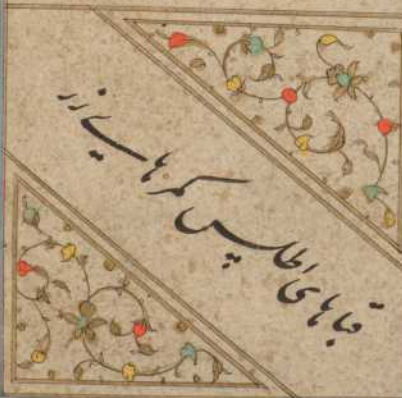 قباهای اطلس کمرهای زر